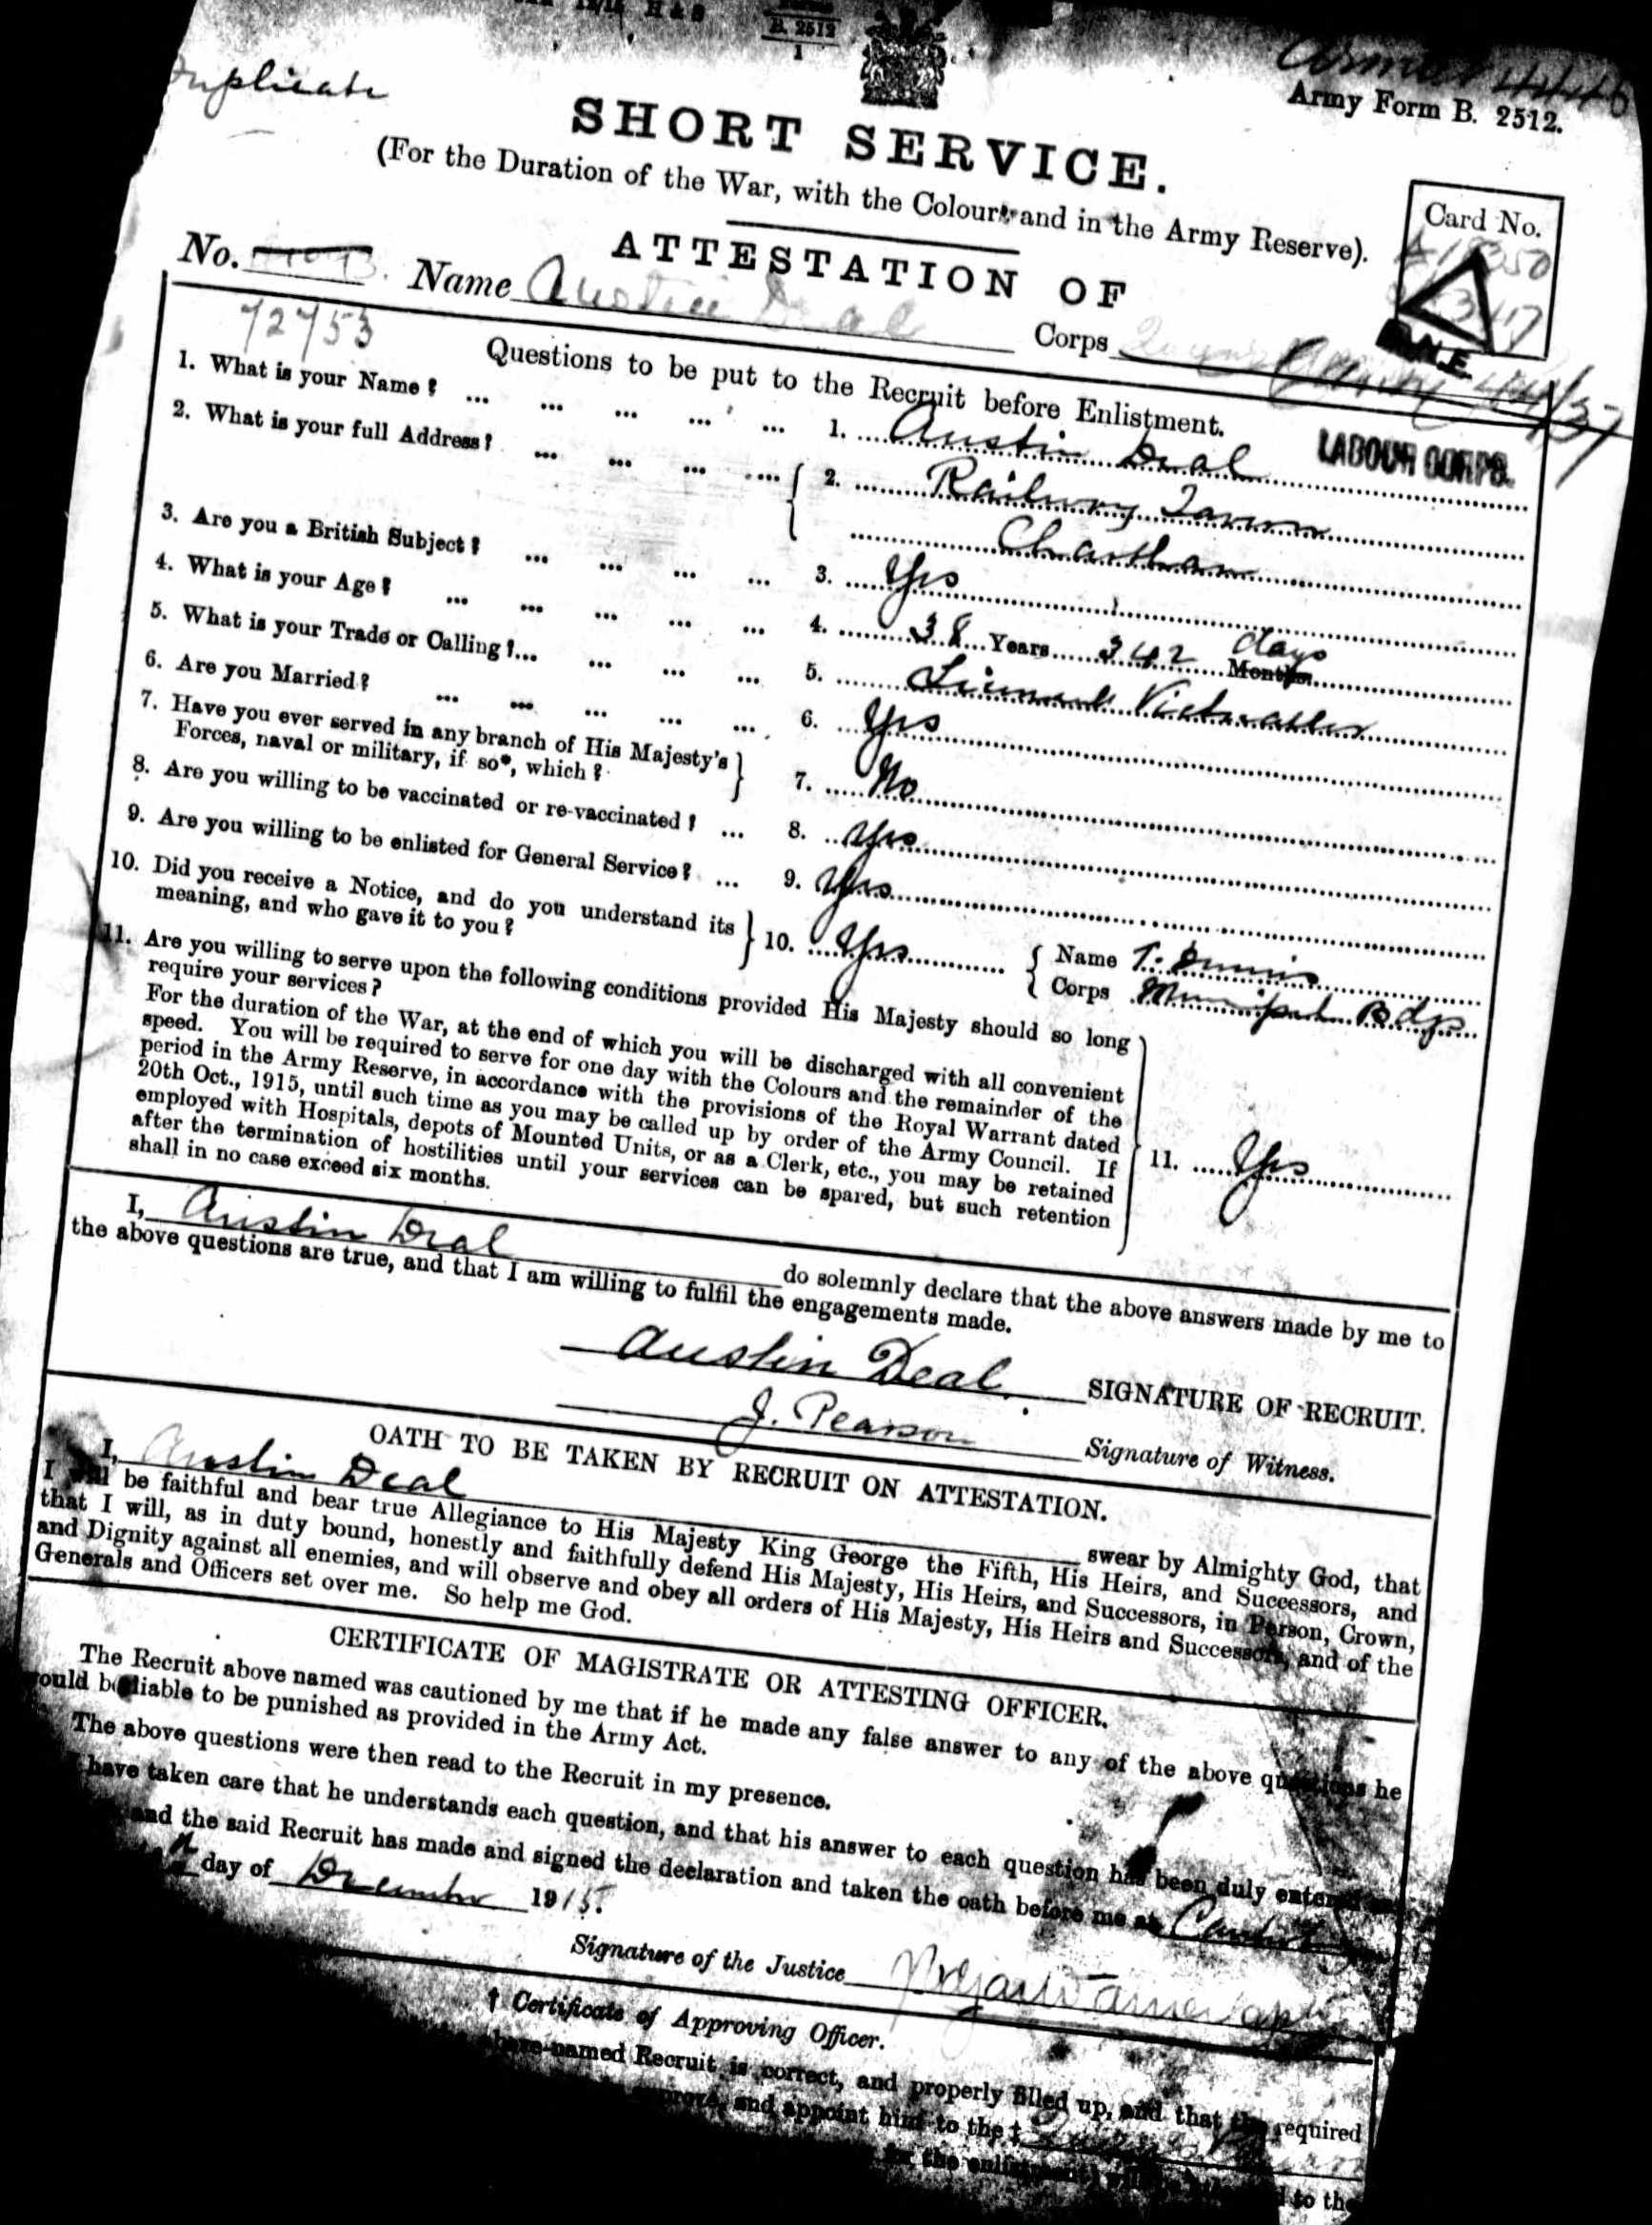 B. 2512
1
Duplicate
Army Form B. 2512.
SHORT SERVICE.
(For the Duration of the War, with the Colours and in the Army Reserve).
Card No.
ATTESTATION OF
No. Name Austin Deal Corps
72753
R.N.E.
Questions to be put to the Recruit before Enlistment.
LABOUR CORPS.
1. What is your Name? ... ... ... ... ... 1. Austin Deal
2. What is your full Address? ... ... ... ... 2. Railway Tavern
Chartham
3. Are you a British Subject? ... ... ... ... 3. Yes
4. What is your Age? ... ... ... ... ... 4. 38 Years 342 days Months
5. What is your Trade or Calling?... ... ... ... 5. Licensed Victualler
6. Are you Married? ... ... ... ... ... 6. Yes
7. Have you ever served in any branch of His Majesty's
Forces, naval or military, if so*, which? 7. No
8. Are you willing to be vaccinated or re-vaccinated? ... 8. Yes
9. Are you willing to be enlisted for General Service? ... 9. Yes
10. Did you receive a Notice, and do you understand its
meaning, and who gave it to you? 10. Yes Name T.
Corps Municipal Bdgs
11. Are you willing to serve upon the following conditions provided His Majesty should so long
require your services?
For the duration of the War, at the end of which you will be discharged with all convenient
speed. You will be required to serve for one day with the Colours and the remainder of the
period in the Army Reserve, in accordance with the provisions of the Royal Warrant dated
20th Oct., 1915, until such time as you may be called up by order of the Army Council. If
employed with Hospitals, depots of Mounted Units, or as a Clerk, etc., you may be retained
after the termination of hostilities until your services can be spared, but such retention
shall in no case exceed six months.
11. Yes
I, Austin Deal do solemnly declare that the above answers made by me to
the above questions are true, and that I am willing to fulfil the engagements made.
Austin Deal. SIGNATURE OF RECRUIT.
J. Pearson Signature of Witness.
OATH TO BE TAKEN BY RECRUIT ON ATTESTATION.
I, Austin Deal swear by Almighty God, that
I will be faithful and bear true Allegiance to His Majesty King George the Fifth, His Heirs, and Successors, and
that I will, as in duty bound, honestly and faithfully defend His Majesty, His Heirs, and Successors, in Person, Crown,
and Dignity against all enemies, and will observe and obey all orders of His Majesty, His Heirs and Successors, and of the
Generals and Officers set over me. So help me God.
CERTIFICATE OF MAGISTRATE OR ATTESTING OFFICER.
The Recruit above named was cautioned by me that if he made any false answer to any of the above questions he
would be liable to be punished as provided in the Army Act.
The above questions were then read to the Recruit in my presence.
have taken care that he understands each question, and that his answer to each question has been duly entered
and the said Recruit has made and signed the declaration and taken the oath before me at
day of December 1915.
Signature of the Justice
† Certificate of Approving Officer.
above-named Recruit is correct, and properly filled up, and that the required
approve, and appoint him to the ‡
for the enlistment to the